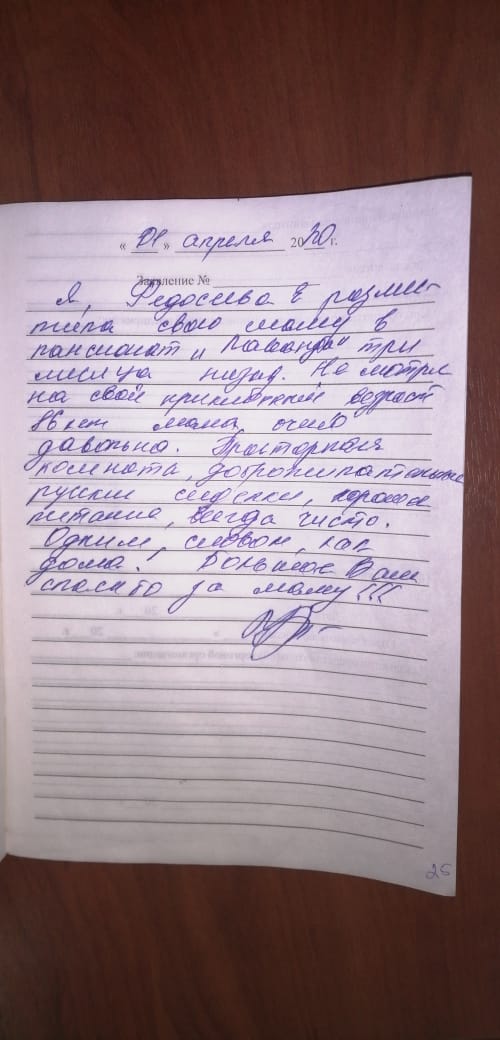 « 01 » апреля 2020 г.
Заявление №
Я, Федосеева Е разместила
свою маму в
пансионат „Лаванда" три
месяца назад. Не смотря
на свой приклонный возраст
86 лет мама очень
давольна. Просторная
комната, доброжилательные
руские сиделки, хорошое
питание, всегда чисто.
Одним, словом, как
дома! Большое Вам
спасибо за маму!!!
25